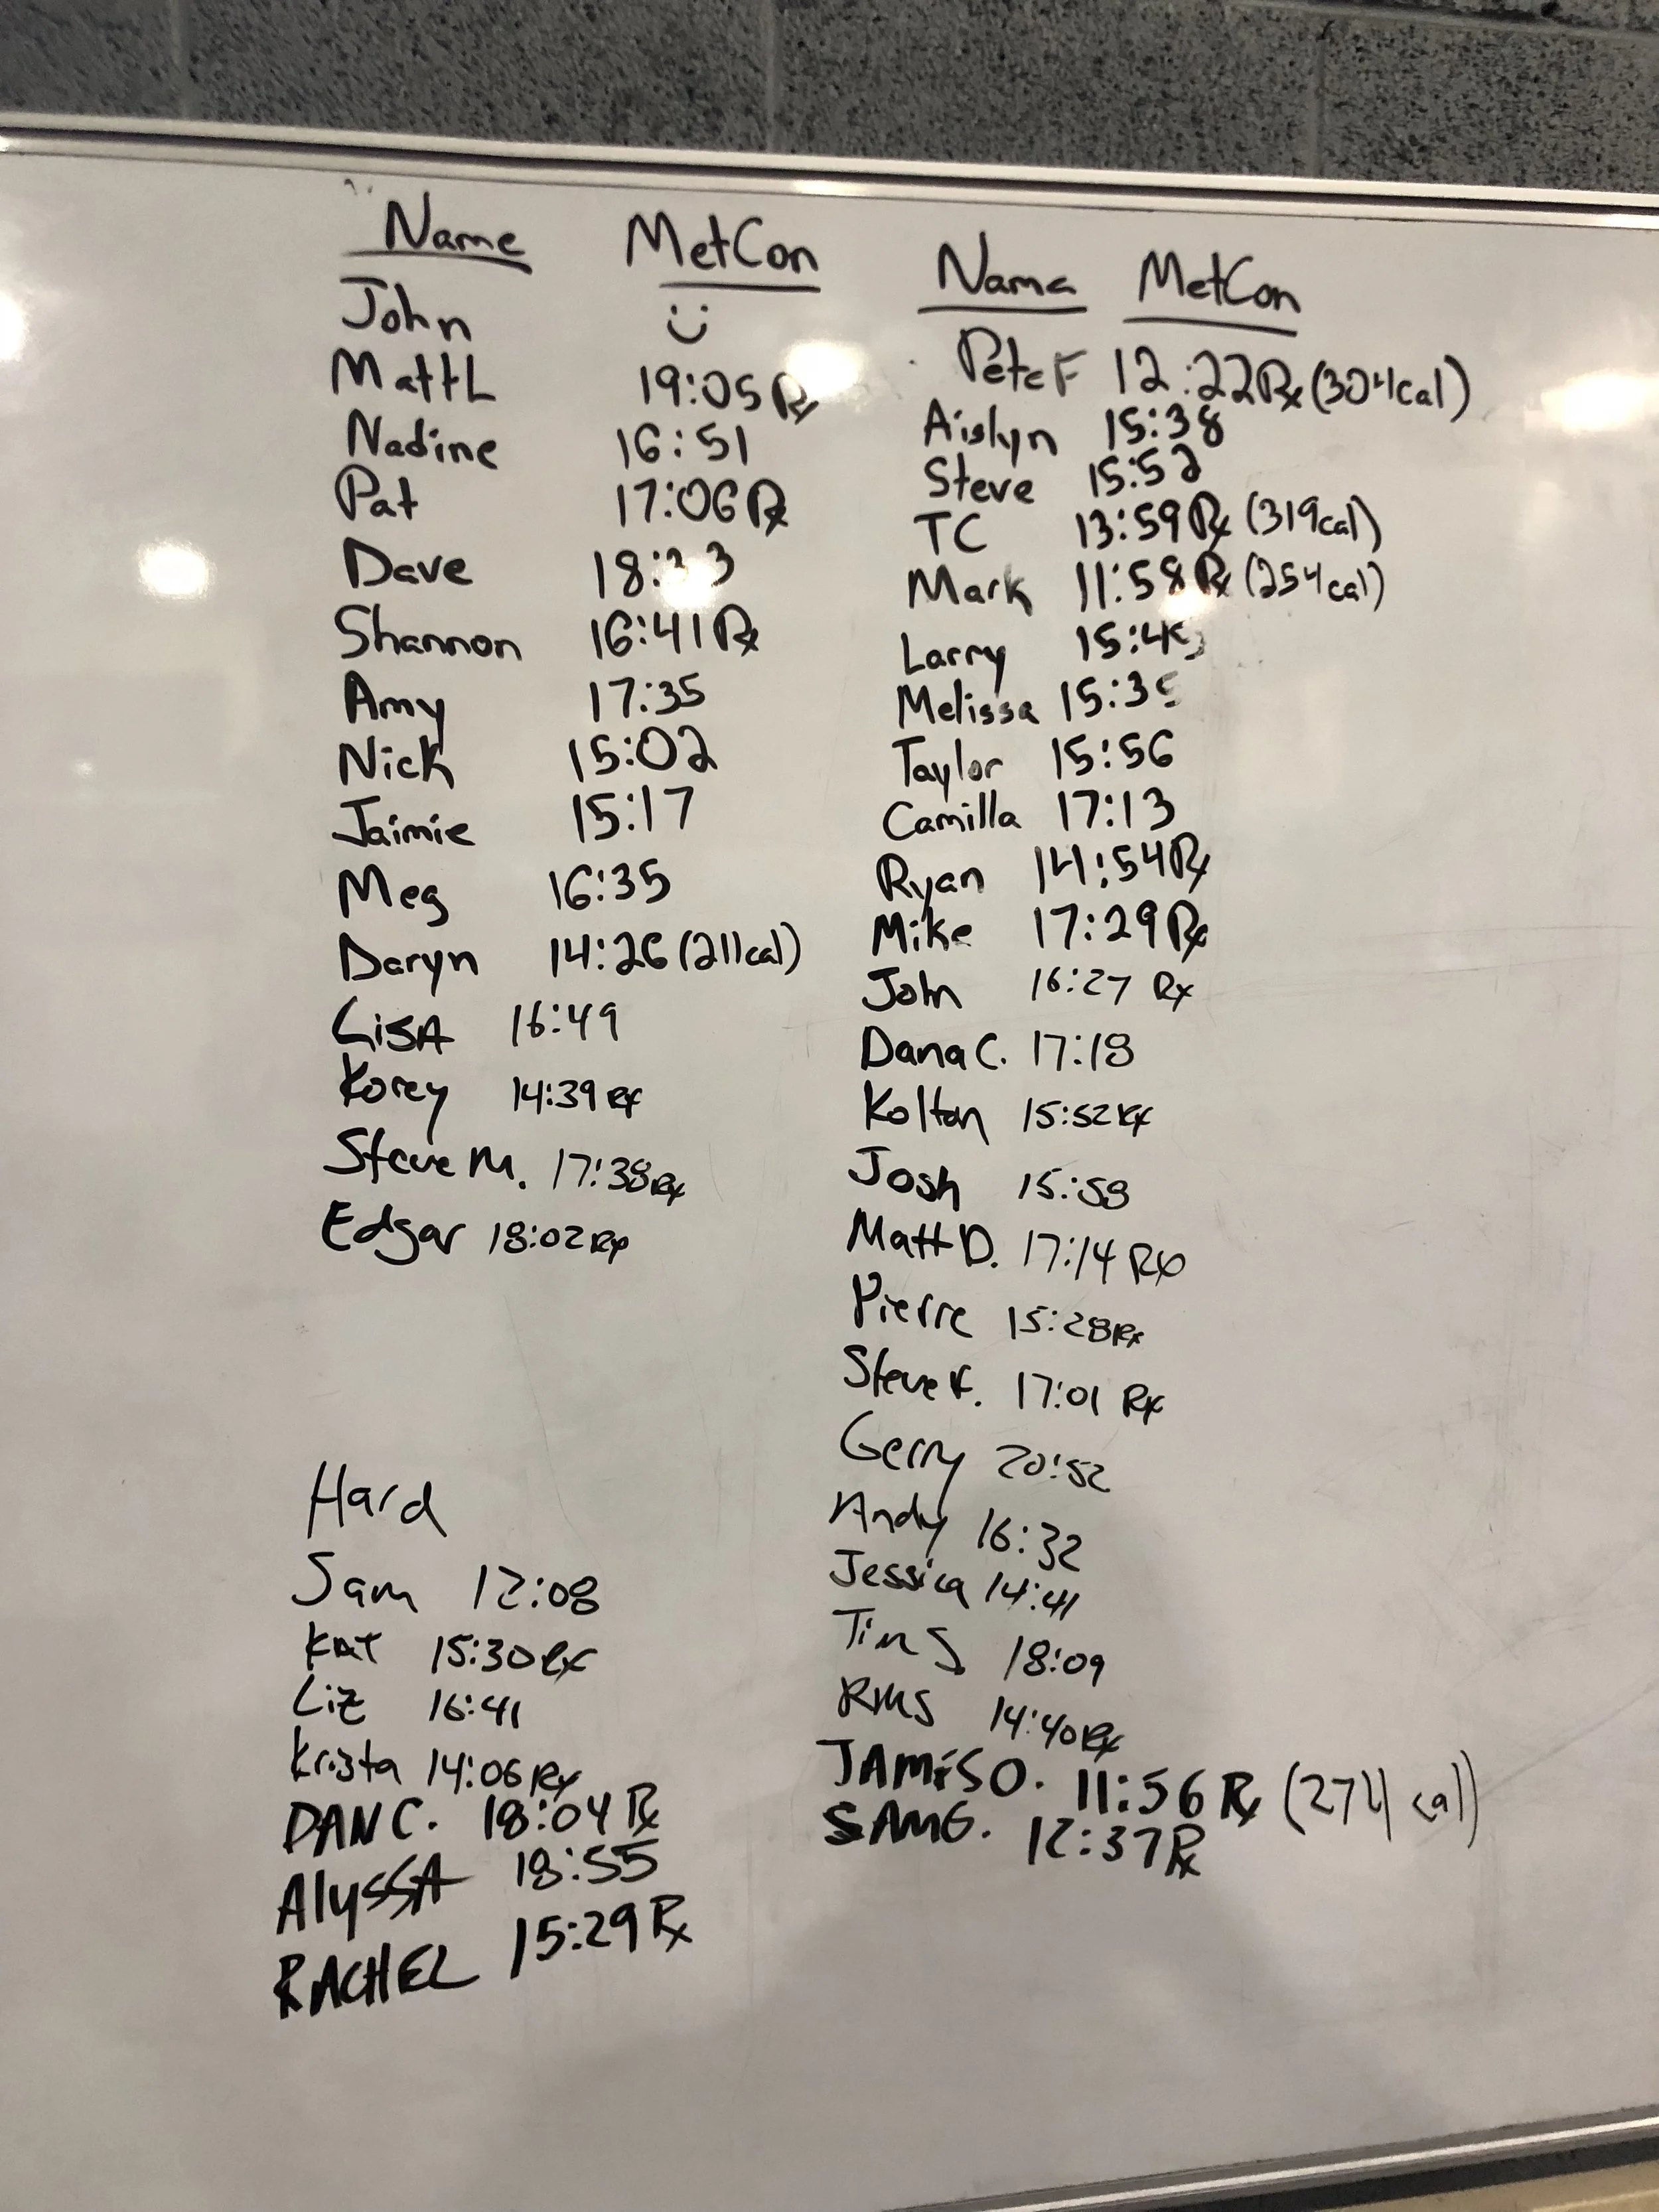 Name MetCon
John
MattL 19:05 Rx
Nadine 16:51
Pat 17:06 Rx
Dave
Shannon 16:41 Rx
Amy 17:35
Nick 15:02
Jaimie 15:17
Meg 16:35
Daryn 14:26 (211cal)
LiSA 16:49
Korey 14:39 Rx
Steve M. 17:38 Rx
Edgar 18:02 Rx
Hard
Sam 12:08
Kat 15:30 Rx
Liz 16:41
Krista 14:06 Rx
DAN C. 18:04 Rx
AlySSA 18:55
RACHEL 15:29 Rx
Name MetCon
Pete F 12:22 Rx (304cal)
Aislyn 15:38
Steve 15:52
TC 13:59 Rx (319cal)
Mark 11:58 Rx (254cal)
Larry
Melissa
Taylor 15:56
Camilla 17:13
Ryan 14:54 Rx
Mike 17:29 Rx
John 16:27 Rx
Dana C. 17:18
Kolton 15:52 Rx
Josh 15:58
Matt D. 17:14 Rx
Pierre 15:28 Rx
Steve F. 17:01 Rx
Gerry 20:52
Andy 16:32
Jessica 14:41
Tim S 18:09
14:40 Rx
JAMiSO. 11:56 Rx (274 cal)
SAM G. 12:37 Rx